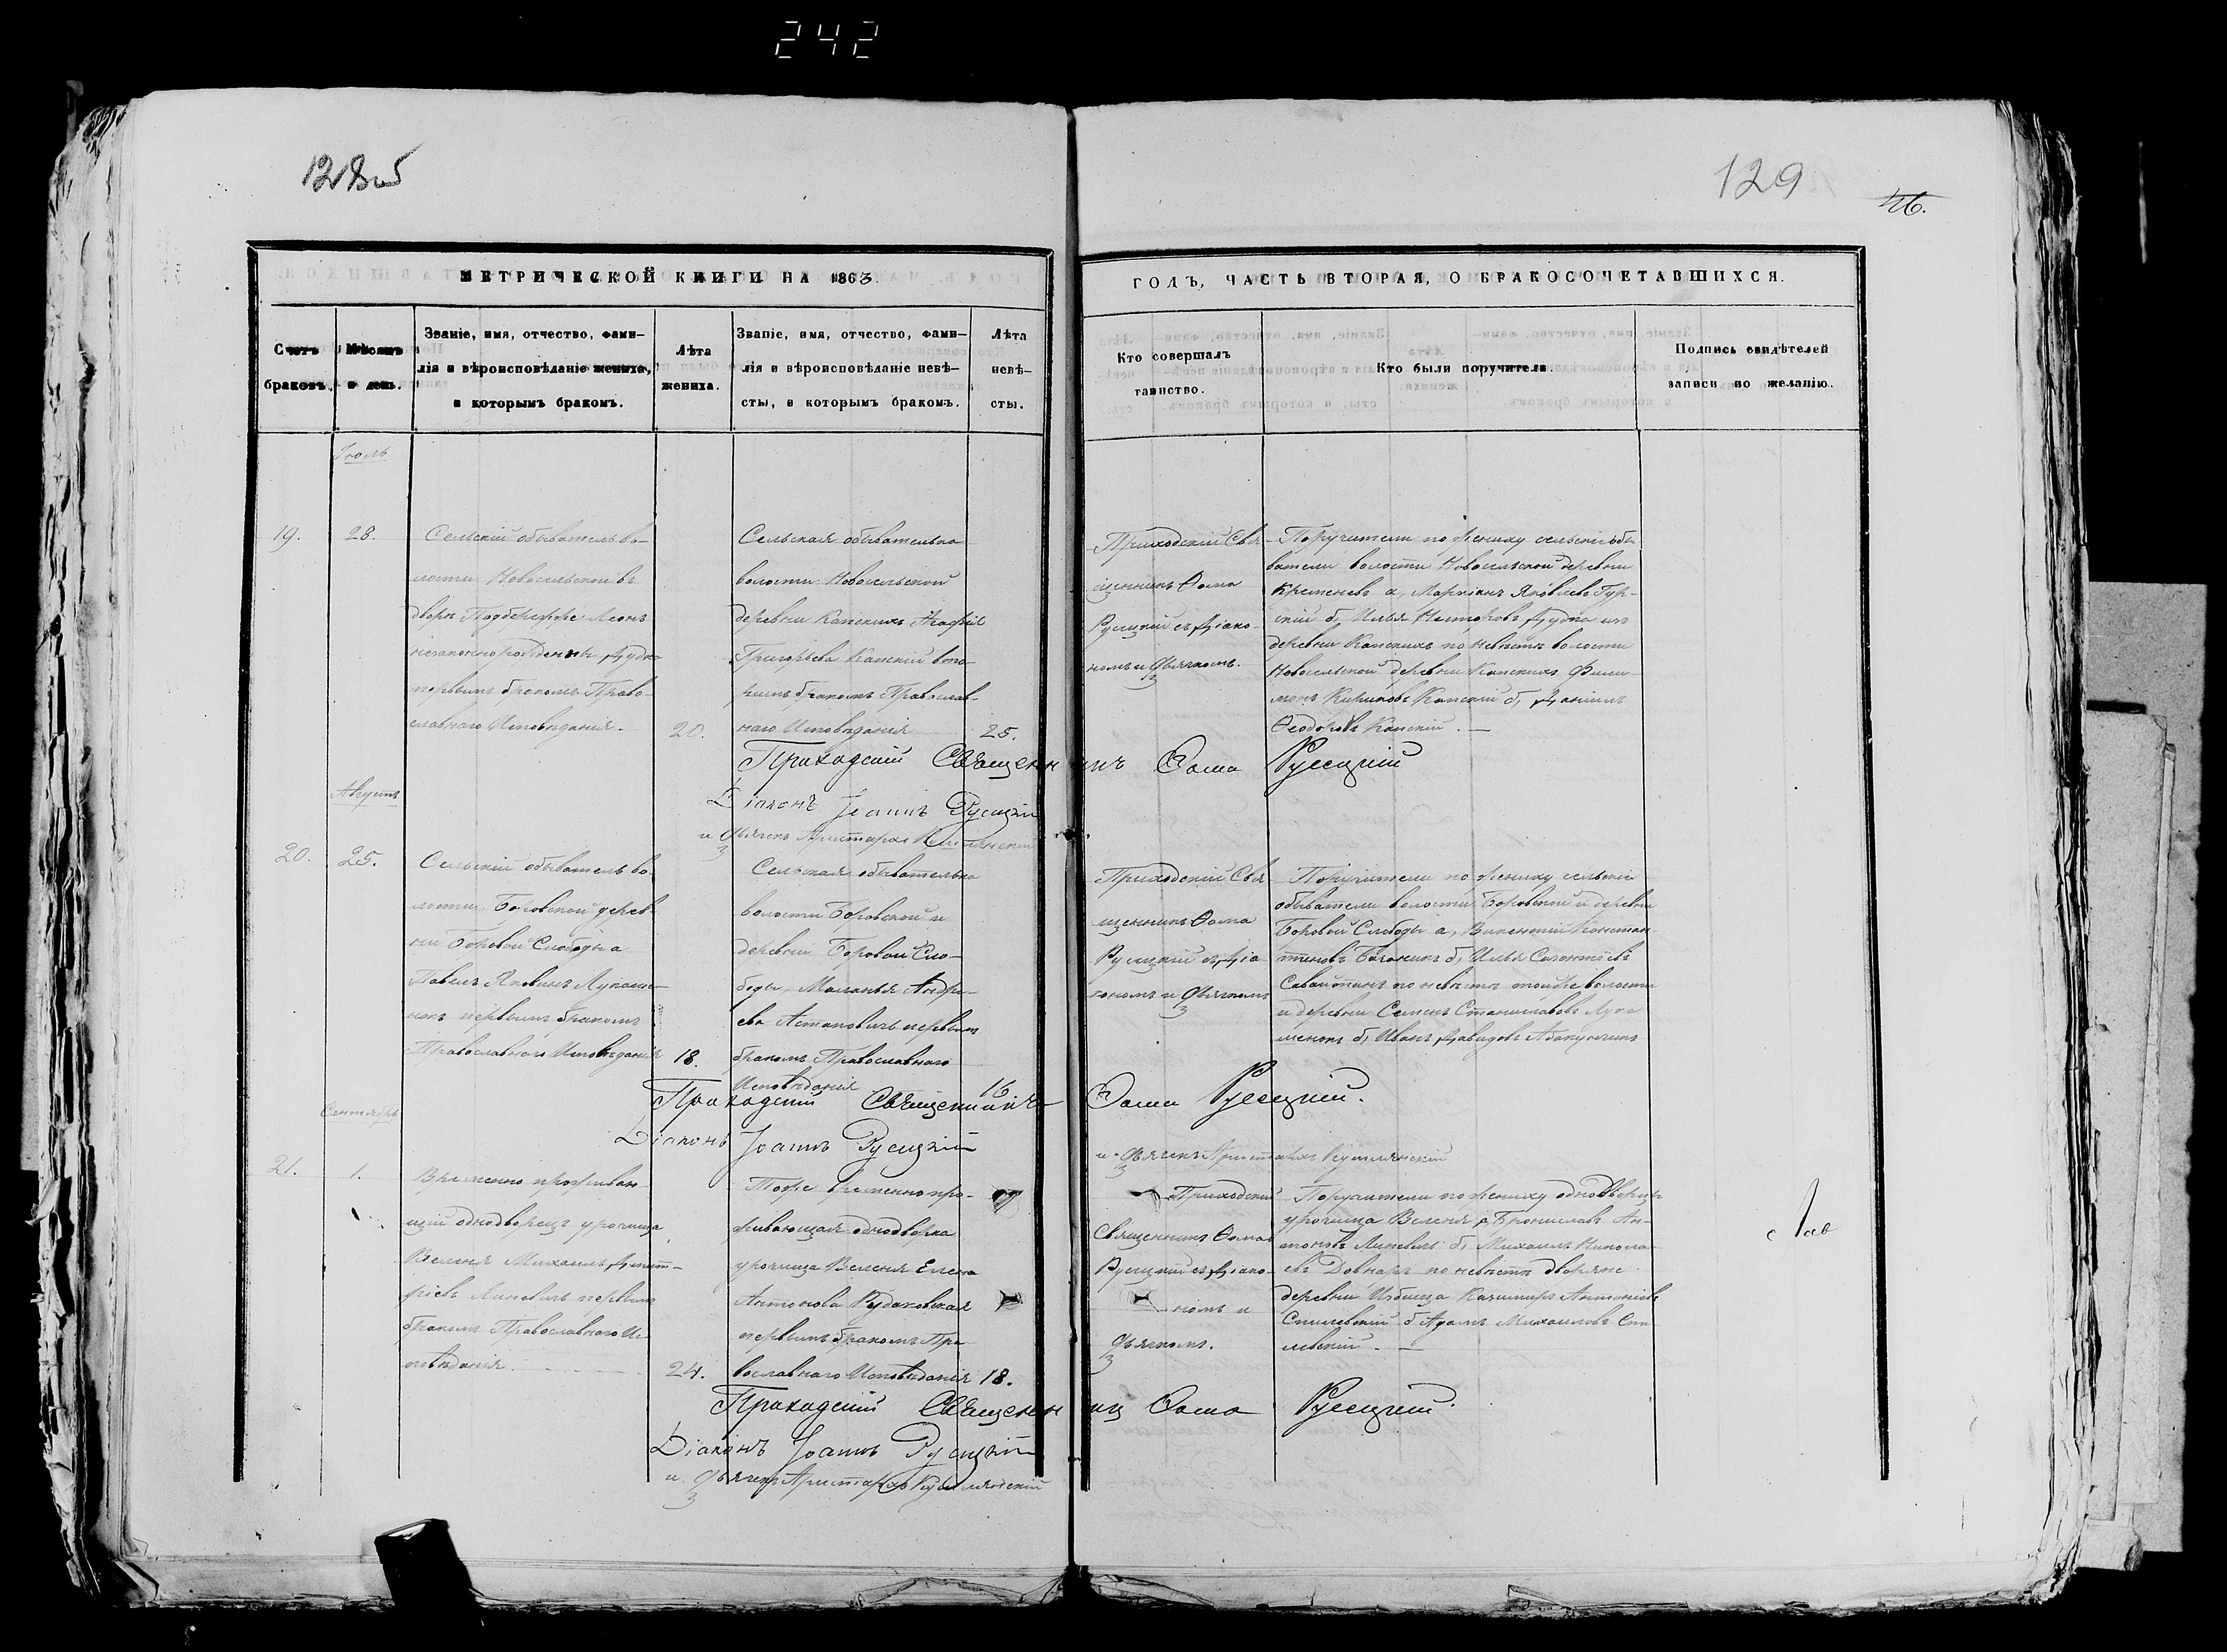 242
128об
129
46.
МЕТРИЧЕСКОЙ КНИГИ НА 1863
ГОДЪ, ЧАСТЬ ВТОРАЯ, О БРАКОСОЧЕТАВШИХСЯ.
Счетъ
браковъ.
Мѣсяцъ
и день.
Званіе, имя, отчество, фами-
лія и вѣроисповѣданіе жениха,
и которымъ бракомъ.
Лѣта
жениха.
Званіе, имя, отчество, фами-
лія и вѣроисповѣданіе невѣ-
сты, и которымъ бракомъ.
Лѣта
невѣ-
сты.
Кто совершалъ
таинство.
Кто были поручители.
Подпись свидѣтелей
записи по желанію.
Іюль
19.
28.
Сельскій обыватель во-
лости Новосельской въ
дворѣ Подбережже Леонъ
незаконнорожденный Дудко
первымъ бракомъ Право-
славнаго Исповѣданія.
20.
Сельская обывателька
волости Новосельской
деревни Капскихъ Агафія
Григорьева Капскій вто-
рымъ бракомъ Православ-
наго Исповѣданія
25.
Приходскій Свя-
щенникъ Ѳома
Русецкій съ Діако-
номъ и Дьячкомъ.
Поручители по жениху сельскіе обы
ватели волости Новосельской деревни
а, Яковлевъ Гур-
скій б, Илья Несторовъ Дудко изъ
деревни Капскихъ по невѣстѣ волости
Новосельской деревни Капскихъ Фили-
монъ Кириковъ Капскій б, Даніилъ
Ѳеодоровъ Капскій.
Приходскій Священникъ Ѳома Русецкій
Діаконъ Іоаннъ Русецкій
и Дьячекъ Аристархъ
Августъ
20.
25.
Сельскій обыватель во-
лости Боровской дерев-
ни Боровой Слободы
Павелъ Яковлевъ Лукаше-
нокъ первымъ бракомъ
Православнаго Исповѣданія
18.
Сельская обывателька
волости Боровской и
деревни Боровой Сло-
боды, Маланья Андре-
ева Астаповичъ первымъ
бракомъ Православнаго
Исповѣданія
16
Приходскій Свя
щенникъ Ѳома
Русецкій съ Діа
кономъ и Дьячкомъ
Поручители по жениху сельскіе
обыватели волости Боровской и деревни
Боровой Слободы а, Викентій Констан-
тиновъ б, Илья
по невѣстѣ тойже волости
и деревни Семенъ Станиславовъ Лука
шенокъ б, Иванъ Давидовъ
Приходскій Священникъ Ѳома Русецкій.
Діаконъ Іоаннъ Русецкій
и Дьячекъ Аристархъ
Сентябрь
21.
1.
Временно проживаю-
щій однодворецъ урочища
Веленя Михаилъ Дмит-
ріевъ Линевичъ первымъ
бракомъ Православнаго Ис-
повѣданія.
24.
Тоже временно про-
живающая однодворка
урочища Веленя Елена
Антонова Рудаковская
первымъ бракомъ Пра-
вославнаго Исповѣданія
18.
Приходскій
Священникъ Ѳома
Русецкій съ Діако-
номъ и
Дьячкомъ.
Поручители по жениху однодворцы
урочища Веленя а, Брониславъ Ан-
тоновъ Линевичъ б, Михаилъ Никола-
евъ Довнаръ по невѣстѣ дворяне
деревни Избища Казимиръ Антоніевъ
б Адамъ Михаиловъ
Приходскій Священникъ Ѳома Русецкій.
Діаконъ Іоаннъ Русецкій
и Дьячекъ Аристархъ